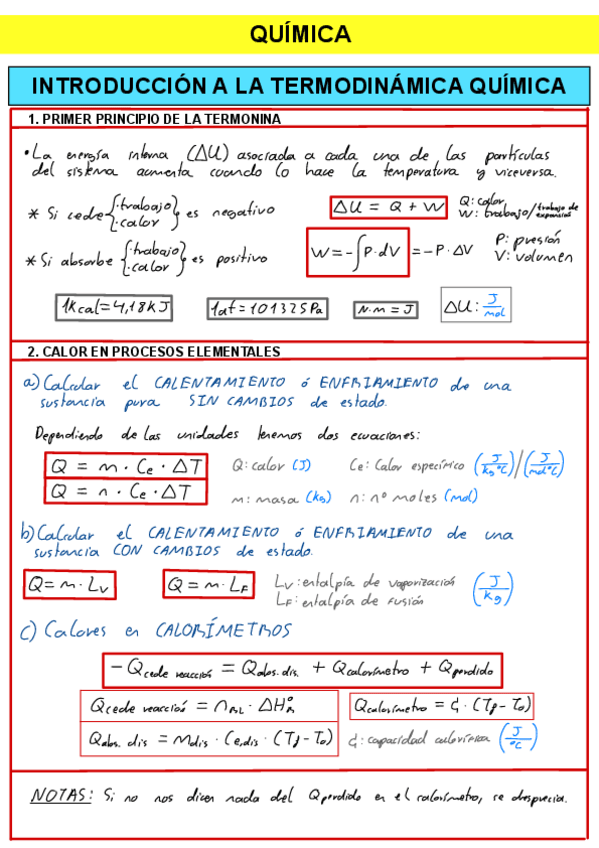 QUÍMICA
INTRODUCCIÓN A LA TERMODINÁMICA QUÍMICA
1. PRIMER PRINCIPIO DE LA TERMONINA
• La energía interna (ΔU) asociada a cada una de las partículas
del sistema aumenta cuando lo hace la temperatura y viceversa.
* Si cede {·trabajo ·calor} es negativo
ΔU = Q + W
Q: calor
W: trabajo/trabajo de expansión
* Si absorbe {·trabajo ·calor} es positivo
W = -∫P·dV = -P·ΔV
P: presión
V: volumen
1kcal = 4,18kJ
1at = 101325Pa
N·m = J
ΔU: J/mol
2. CALOR EN PROCESOS ELEMENTALES
a) Calcular el CALENTAMIENTO ó ENFRIAMIENTO de una
sustancia pura SIN CAMBIOS de estado.
Dependiendo de las unidades tenemos dos ecuaciones:
Q = m · Ce · ΔT
Q = n · Ce · ΔT
Q: calor (J) Ce: Calor específico (J/kg°C)/(J/mol°C)
m: masa (kg) n: nº moles (mol)
b) Calcular el CALENTAMIENTO ó ENFRIAMIENTO de una
sustancia CON CAMBIOS de estado.
Q = m · Lv
Q = m · LF
Lv: entalpía de vaporización (J/kg)
LF: entalpía de fusión
c) Calores en CALORÍMETROS
-Qcede reacción = Qabs. dis. + Qcalorímetro + Qperdido
Qcede reacción = nRL · ΔH°R
Qcalorímetro = C · (Tf - To)
Qabs. dis = mdis · Ce,dis · (Tf - To)
C: capacidad calorímica (J/°C)
NOTAS: Si no nos dicen nada del Qperdido en el calorímetro, se desprecia.